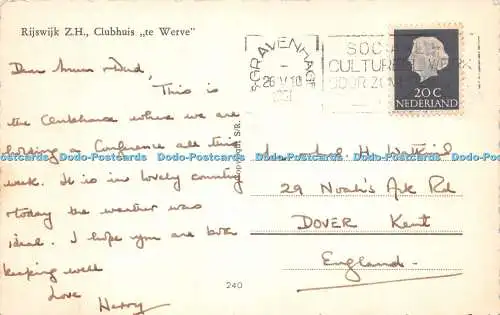 Rijswijk Z.H., Clubhuis „te Werve"
Dear Mum & Dad,
This is
the Clubhouse where we are
holding a Conference all this
week. It is in lovely country
today the weather was
ideal. I hope you are both
keeping well
Love
Henry
'S-GRAVENHAGE
26.V.10
SOCIAAL
CULTUREEL WERK
DOOR ZOM
20 C
NEDERLAND
Mr and H
29 Noah's Ark Rd
DOVER Kent
England.
240
Dodo-Postcards Dodo-Postcards Dodo-Postcards Dodo-Postcards Dodo-Postcards